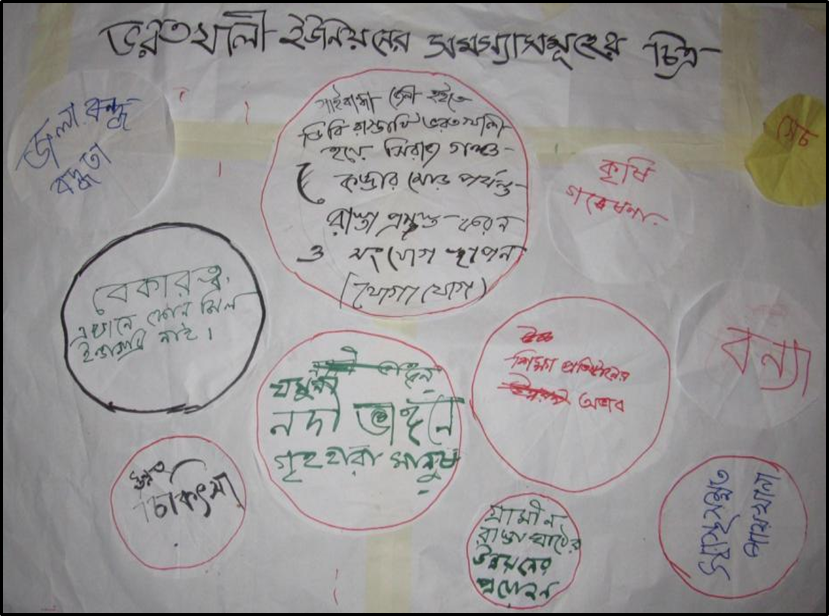 ভরতখালী ইউনিয়নের সমস্যাসমূহের চিত্র
জলাবদ্ধ
বদ্ধতা
গাইবান্ধা জেলা হইতে
ভায়া ভরতখালী
হয়ে
মোড় পর্যন্ত
রাস্তা প্রসস্ত করন
ও সংযোগ স্থাপন
(যোগাযোগ)
কৃষি
গবেষনা
সেচ
বেকারত্ব,
এখানে কোন মিল
ইন্ডাসট্রি নাই।
যমুনা
নদী ভাঙ্গনে
গৃহহারা মানুষ
শিক্ষা প্রতিষ্ঠানের
অভাব
বন্যা
উন্নত
চিকিৎসা
গ্রামীন
রাস্তা ঘাটের
উন্নয়নের
প্রয়োজন
স্বাস্থ্যসম্মত
পায়খানা